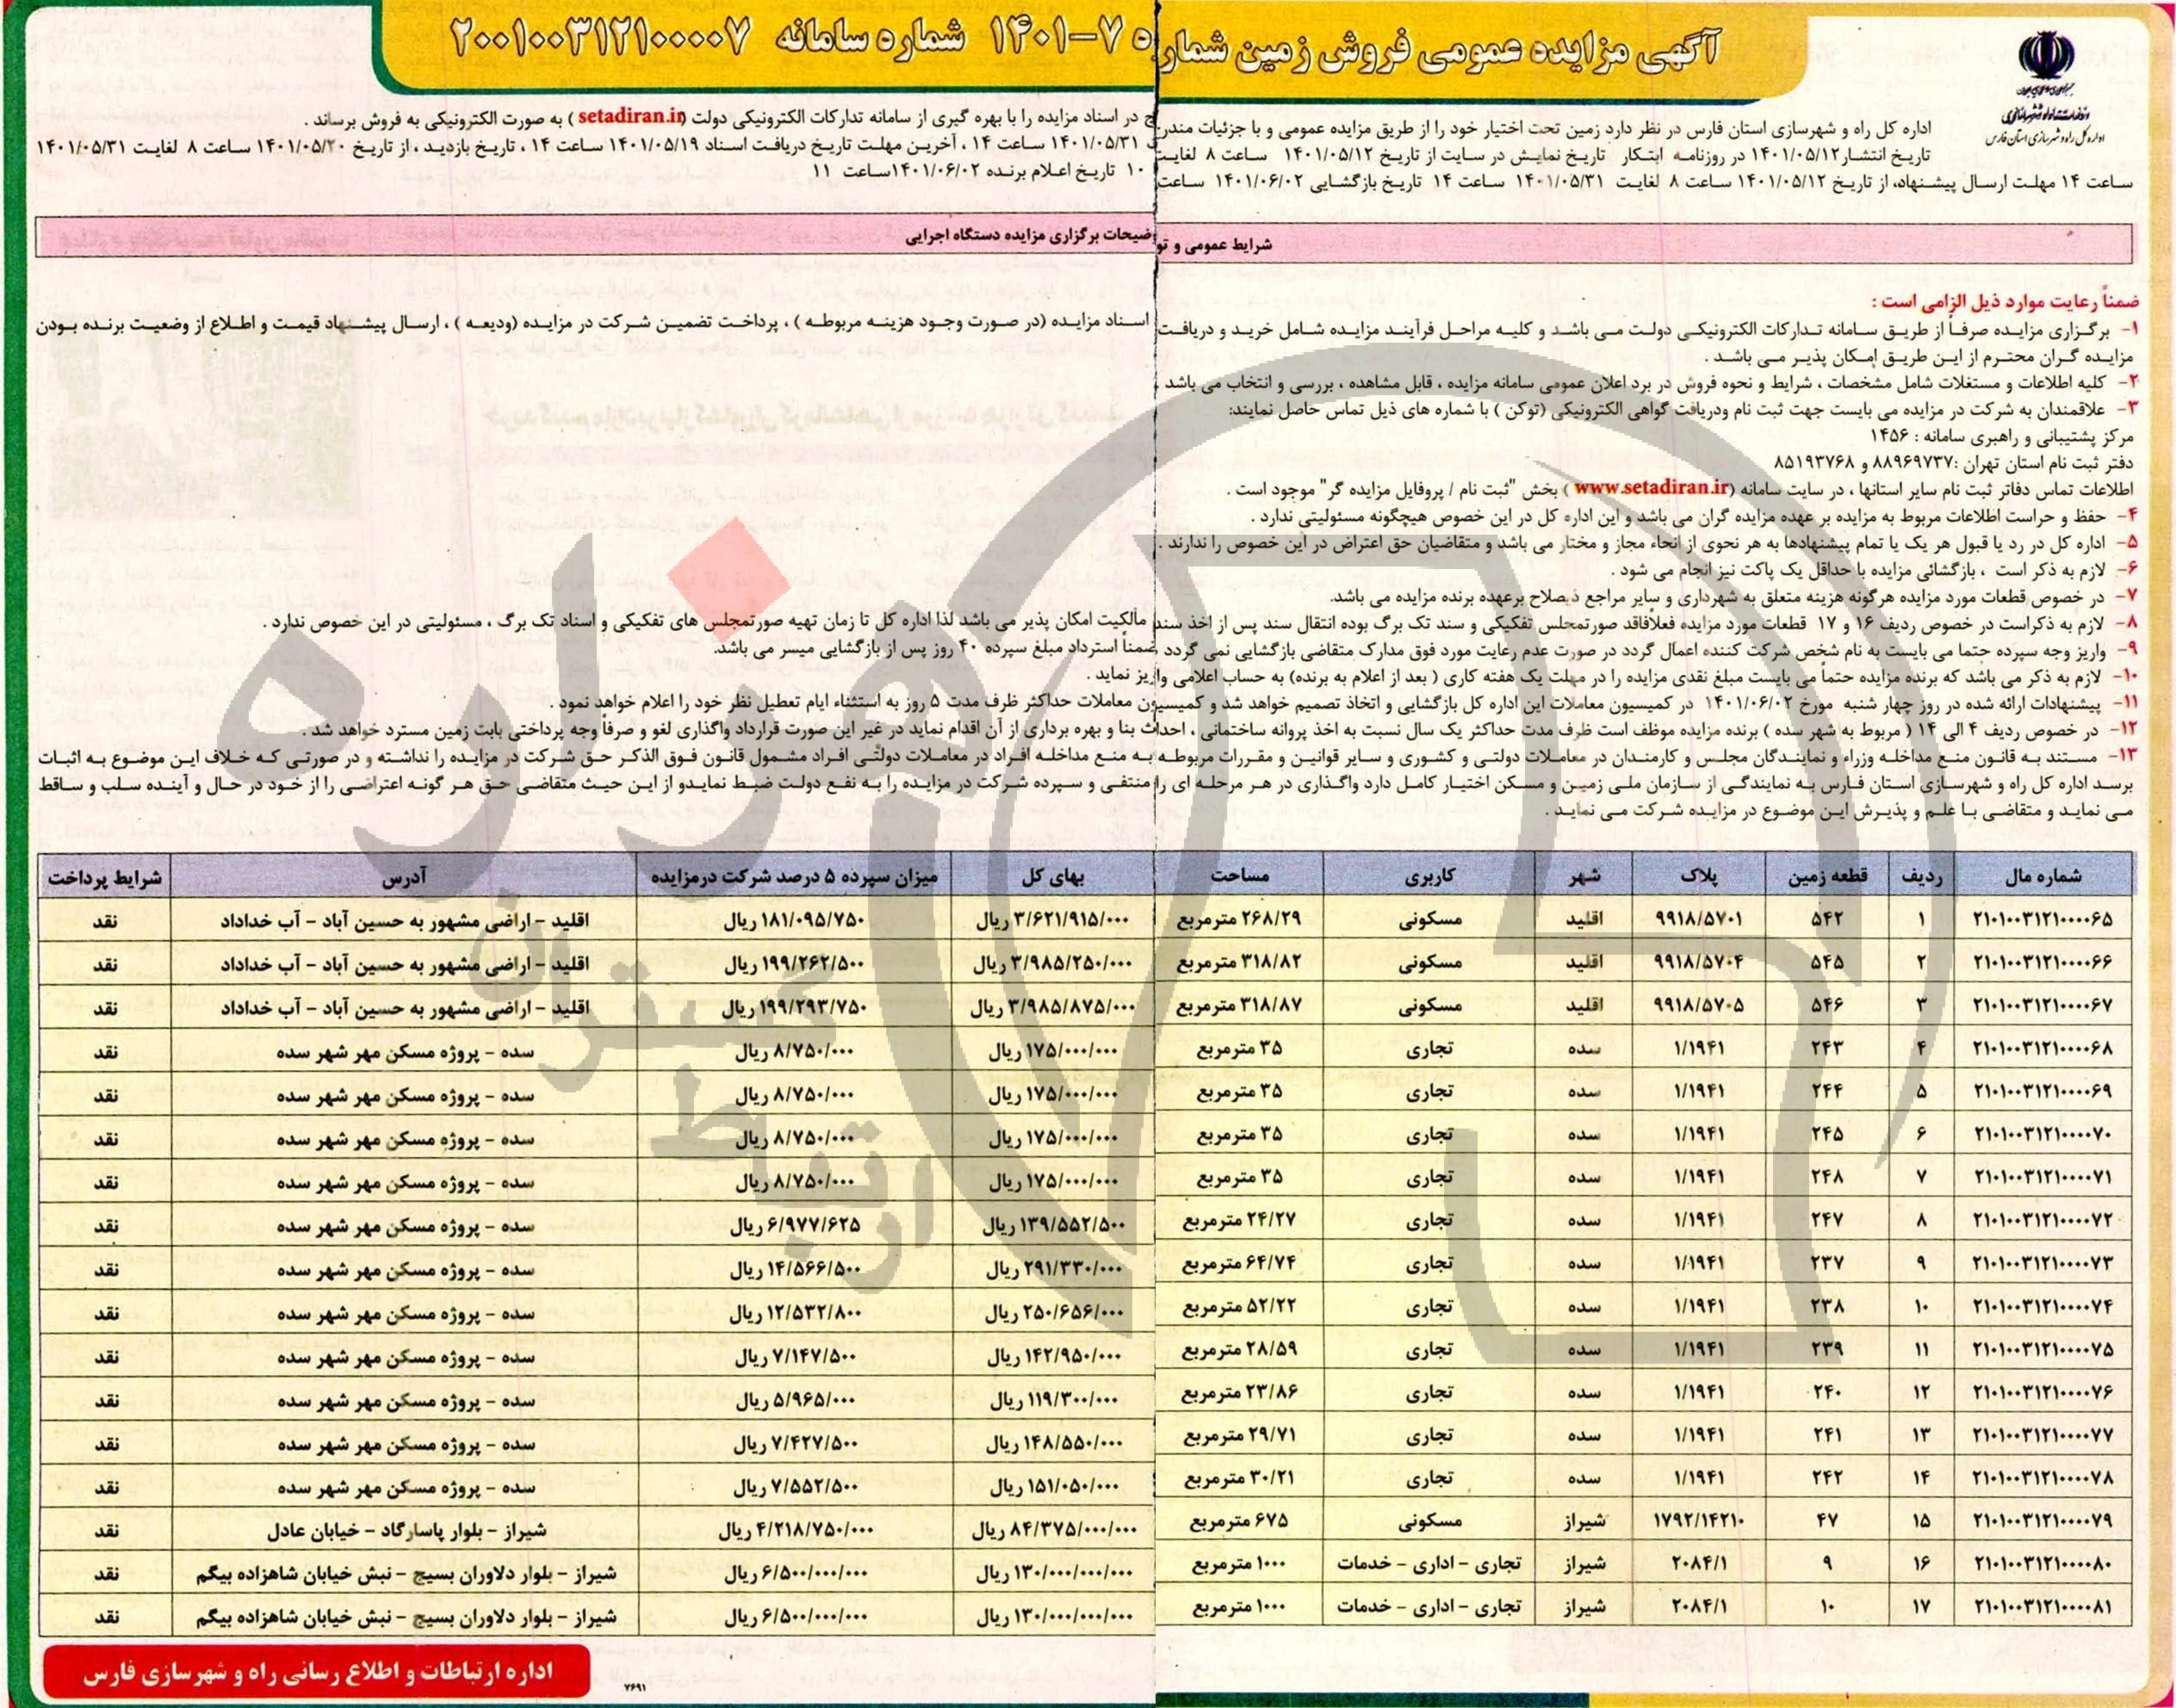 آگهی مزایده عمومی فروش زمین شماره ۷-۱۴۰۱ شماره سامانه ۲۰۰۱۰۰۳۱۲۱۰۰۰۰۰۷
اداره کل راه و شهرسازی استان فارس
اداره کل راه و شهرسازی استان فارس در نظر دارد زمین تحت اختیار خود را از طریق مزایده عمومی و با جزئیات مندرج در اسناد مزایده را با بهره گیری از سامانه تدارکات الکترونیکی دولت (setadiran.ir) به صورت الکترونیکی به فروش برساند .
تاریخ انتشار ۱۴۰۱/۰۵/۱۲ در روزنامه ابتکار تاریخ نمایش در سایت از تاریخ ۱۴۰۱/۰۵/۱۲ ساعت ۸ لغایت ۱۴۰۱/۰۵/۳۱ ساعت ۱۴ ، آخرین مهلت تاریخ دریافت اسناد ۱۴۰۱/۰۵/۱۹ ساعت ۱۴ ، تاریخ بازدید ، از تاریخ ۱۴۰۱/۰۵/۲۰ ساعت ۸ لغایت ۱۴۰۱/۰۵/۳۱
ساعت ۱۴ مهلت ارسال پیشنهاد، از تاریخ ۱۴۰۱/۰۵/۱۲ ساعت ۸ لغایت ۱۴۰۱/۰۵/۳۱ ساعت ۱۴ تاریخ بازگشایی ۱۴۰۱/۰۶/۰۲ ساعت ۱۰ تاریخ اعلام برنده ۱۴۰۱/۰۶/۰۲ساعت ۱۱
شرایط عمومی و توضیحات برگزاری مزایده دستگاه اجرایی
ضمناً رعایت موارد ذیل الزامی است :
۱- برگزاری مزایده صرفاً از طریق سامانه تدارکات الکترونیکی دولت می باشد و کلیه مراحل فرآیند مزایده شامل خرید و دریافت اسناد مزایده (در صورت وجود هزینه مربوطه ) ، پرداخت تضمین شرکت در مزایده (ودیعه ) ، ارسال پیشنهاد قیمت و اطلاع از وضعیت برنده بودن
مزایده گران محترم از این طریق امکان پذیر می باشد .
۲- کلیه اطلاعات و مستغلات شامل مشخصات ، شرایط و نحوه فروش در برد اعلان عمومی سامانه مزایده ، قابل مشاهده ، بررسی و انتخاب می باشد .
۳- علاقمندان به شرکت در مزایده می بایست جهت ثبت نام ودریافت گواهی الکترونیکی (توکن ) با شماره های ذیل تماس حاصل نمایند:
مرکز پشتیبانی و راهبری سامانه : ۱۴۵۶
دفتر ثبت نام استان تهران :۸۸۹۶۹۷۳۷ و ۸۵۱۹۳۷۶۸
اطلاعات تماس دفاتر ثبت نام سایر استانها ، در سایت سامانه (www.setadiran.ir ) بخش "ثبت نام / پروفایل مزایده گر" موجود است .
۴- حفظ و حراست اطلاعات مربوط به مزایده بر عهده مزایده گران می باشد و این اداره کل در این خصوص هیچگونه مسئولیتی ندارد .
۵- اداره کل در رد یا قبول هر یک یا تمام پیشنهادها به هر نحوی از انحاء مجاز و مختار می باشد و متقاضیان حق اعتراض در این خصوص را ندارند .
۶- لازم به ذکر است ، بازگشائی مزایده با حداقل یک پاکت نیز انجام می شود .
۷- در خصوص قطعات مورد مزایده هرگونه هزینه متعلق به شهرداری و سایر مراجع ذیصلاح برعهده برنده مزایده می باشد.
۸- لازم به ذکراست در خصوص ردیف ۱۶ و ۱۷ قطعات مورد مزایده فعلاًفاقد صورتمجلس تفکیکی و سند تک برگ بوده انتقال سند پس از اخذ سند مالکیت امکان پذیر می باشد لذا اداره کل تا زمان تهیه صورتمجلس های تفکیکی و اسناد تک برگ ، مسئولیتی در این خصوص ندارد .
۹- واریز وجه سپرده حتما می بایست به نام شخص شرکت کننده اعمال گردد در صورت عدم رعایت مورد فوق مدارک متقاضی بازگشایی نمی گردد ضمناً استرداد مبلغ سپرده ۴۰ روز پس از بازگشایی میسر می باشد.
۱۰- لازم به ذکر می باشد که برنده مزایده حتماً می بایست مبلغ نقدی مزایده را در مهلت یک هفته کاری ( بعد از اعلام به برنده) به حساب اعلامی واریز نماید .
۱۱- پیشنهادات ارائه شده در روز چهار شنبه مورخ ۱۴۰۱/۰۶/۰۲ در کمیسیون معاملات این اداره کل بازگشایی و اتخاذ تصمیم خواهد شد و کمیسیون معاملات حداکثر ظرف مدت ۵ روز به استثناء ایام تعطیل نظر خود را اعلام خواهد نمود .
۱۲- در خصوص ردیف ۴ الی ۱۴ ( مربوط به شهر سده ) برنده مزایده موظف است ظرف مدت حداکثر یک سال نسبت به اخذ پروانه ساختمانی ، احداث بنا و بهره برداری از آن اقدام نماید در غیر این صورت قرارداد واگذاری لغو و صرفاً وجه پرداختی بابت زمین مسترد خواهد شد .
۱۳- مستند به قانون منع مداخله وزراء و نمایندگان مجلس و کارمندان در معاملات دولتی و کشوری و سایر قوانین و مقررات مربوطه به منع مداخله افراد در معاملات دولتی افراد مشمول قانون فوق الذکر حق شرکت در مزایده را نداشته و در صورتی که خلاف این موضوع به اثبات
برسد اداره کل راه و شهرسازی استان فارس به نمایندگی از سازمان ملی زمین و مسکن اختیار کامل دارد واگذاری در هر مرحله ای را منتفی و سپرده شرکت در مزایده را به نفع دولت ضبط نمایدو از این حیث متقاضی حق هر گونه اعتراضی را از خود در حال و آینده سلب و ساقط
می نماید و متقاضی با علم و پذیرش این موضوع در مزایده شرکت می نماید .
شماره مال ردیف قطعه زمین پلاک شهر کاربری مساحت بهای کل میزان سپرده ۵ درصد شرکت درمزایده آدرس شرایط پرداخت
۲۱۰۱۰۰۳۱۲۱۰۰۰۰۶۵ ۱ ۵۴۲ ۹۹۱۸/۵۷۰۱ اقلید مسکونی ۲۶۸/۲۹ مترمربع ۳/۶۲۱/۹۱۵/۰۰۰ ریال ۱۸۱/۰۹۵/۷۵۰ ریال اقلید - اراضی مشهور به حسین آباد - آب خداداد نقد
۲۱۰۱۰۰۳۱۲۱۰۰۰۰۶۶ ۲ ۵۴۵ ۹۹۱۸/۵۷۰۴ اقلید مسکونی ۳۱۸/۸۲ مترمربع ۳/۹۸۵/۲۵۰/۰۰۰ ریال ۱۹۹/۲۶۲/۵۰۰ ریال اقلید - اراضی مشهور به حسین آباد - آب خداداد نقد
۲۱۰۱۰۰۳۱۲۱۰۰۰۰۶۷ ۳ ۵۴۶ ۹۹۱۸/۵۷۰۵ اقلید مسکونی ۳۱۸/۸۷ مترمربع ۳/۹۸۵/۸۷۵/۰۰۰ ریال ۱۹۹/۲۹۳/۷۵۰ ریال اقلید - اراضی مشهور به حسین آباد - آب خداداد نقد
۲۱۰۱۰۰۳۱۲۱۰۰۰۰۶۸ ۴ ۲۴۳ ۱/۱۹۴۱ سده تجاری ۳۵ مترمربع ۱۷۵/۰۰۰/۰۰۰ ریال ۸/۷۵۰/۰۰۰ ریال سده - پروژه مسکن مهر شهر سده نقد
۲۱۰۱۰۰۳۱۲۱۰۰۰۰۶۹ ۵ ۲۴۴ ۱/۱۹۴۱ سده تجاری ۳۵ مترمربع ۱۷۵/۰۰۰/۰۰۰ ریال ۸/۷۵۰/۰۰۰ ریال سده - پروژه مسکن مهر شهر سده نقد
۲۱۰۱۰۰۳۱۲۱۰۰۰۰۷۰ ۶ ۲۴۵ ۱/۱۹۴۱ سده تجاری ۳۵ مترمربع ۱۷۵/۰۰۰/۰۰۰ ریال ۸/۷۵۰/۰۰۰ ریال سده - پروژه مسکن مهر شهر سده نقد
۲۱۰۱۰۰۳۱۲۱۰۰۰۰۷۱ ۷ ۲۴۸ ۱/۱۹۴۱ سده تجاری ۳۵ مترمربع ۱۷۵/۰۰۰/۰۰۰ ریال ۸/۷۵۰/۰۰۰ ریال سده - پروژه مسکن مهر شهر سده نقد
۲۱۰۱۰۰۳۱۲۱۰۰۰۰۷۲ ۸ ۲۴۷ ۱/۱۹۴۱ سده تجاری ۲۴/۲۷ مترمربع ۱۳۹/۵۵۲/۵۰۰ ریال ۶/۹۷۷/۶۲۵ ریال سده - پروژه مسکن مهر شهر سده نقد
۲۱۰۱۰۰۳۱۲۱۰۰۰۰۷۳ ۹ ۲۳۷ ۱/۱۹۴۱ سده تجاری ۶۴/۷۴ مترمربع ۲۹۱/۳۳۰/۰۰۰ ریال ۱۴/۵۶۶/۵۰۰ ریال سده - پروژه مسکن مهر شهر سده نقد
۲۱۰۱۰۰۳۱۲۱۰۰۰۰۷۴ ۱۰ ۲۳۸ ۱/۱۹۴۱ سده تجاری ۵۲/۲۲ مترمربع ۲۵۰/۶۵۶/۰۰۰ ریال ۱۲/۵۳۲/۸۰۰ ریال سده - پروژه مسکن مهر شهر سده نقد
۲۱۰۱۰۰۳۱۲۱۰۰۰۰۷۵ ۱۱ ۲۳۹ ۱/۱۹۴۱ سده تجاری ۲۸/۵۹ مترمربع ۱۴۲/۹۵۰/۰۰۰ ریال ۷/۱۴۷/۵۰۰ ریال سده - پروژه مسکن مهر شهر سده نقد
۲۱۰۱۰۰۳۱۲۱۰۰۰۰۷۶ ۱۲ ۲۴۰ ۱/۱۹۴۱ سده تجاری ۲۳/۸۶ مترمربع ۱۱۹/۳۰۰/۰۰۰ ریال ۵/۹۶۵/۰۰۰ ریال سده - پروژه مسکن مهر شهر سده نقد
۲۱۰۱۰۰۳۱۲۱۰۰۰۰۷۷ ۱۳ ۲۴۱ ۱/۱۹۴۱ سده تجاری ۲۹/۷۱ مترمربع ۱۴۸/۵۵۰/۰۰۰ ریال ۷/۴۲۷/۵۰۰ ریال سده - پروژه مسکن مهر شهر سده نقد
۲۱۰۱۰۰۳۱۲۱۰۰۰۰۷۸ ۱۴ ۲۴۲ ۱/۱۹۴۱ سده تجاری ۳۰/۲۱ مترمربع ۱۵۱/۰۵۰/۰۰۰ ریال ۷/۵۵۲/۵۰۰ ریال سده - پروژه مسکن مهر شهر سده نقد
۲۱۰۱۰۰۳۱۲۱۰۰۰۰۷۹ ۱۵ ۴۷ ۱۷۹۲/۱۴۲۱۰ شیراز مسکونی ۶۷۵ مترمربع ۸۴/۳۷۵/۰۰۰/۰۰۰ ریال ۴/۲۱۸/۷۵۰/۰۰۰ ریال شیراز - بلوار پاسارگاد - خیابان عادل نقد
۲۱۰۱۰۰۳۱۲۱۰۰۰۰۸۰ ۱۶ ۹ ۲۰۸۴/۱ شیراز تجاری - اداری - خدمات ۱۰۰۰ مترمربع ۱۳۰/۰۰۰/۰۰۰/۰۰۰ ریال ۶/۵۰۰/۰۰۰/۰۰۰ ریال شیراز - بلوار دلاوران بسیج - نبش خیابان شاهزاده بیگم نقد
۲۱۰۱۰۰۳۱۲۱۰۰۰۰۸۱ ۱۷ ۱۰ ۲۰۸۴/۱ شیراز تجاری - اداری - خدمات ۱۰۰۰ مترمربع ۱۳۰/۰۰۰/۰۰۰/۰۰۰ ریال ۶/۵۰۰/۰۰۰/۰۰۰ ریال شیراز - بلوار دلاوران بسیج - نبش خیابان شاهزاده بیگم نقد
اداره ارتباطات و اطلاع رسانی راه و شهرسازی فارس
۷۶۹۱
هزاره
گستران
ارتباط